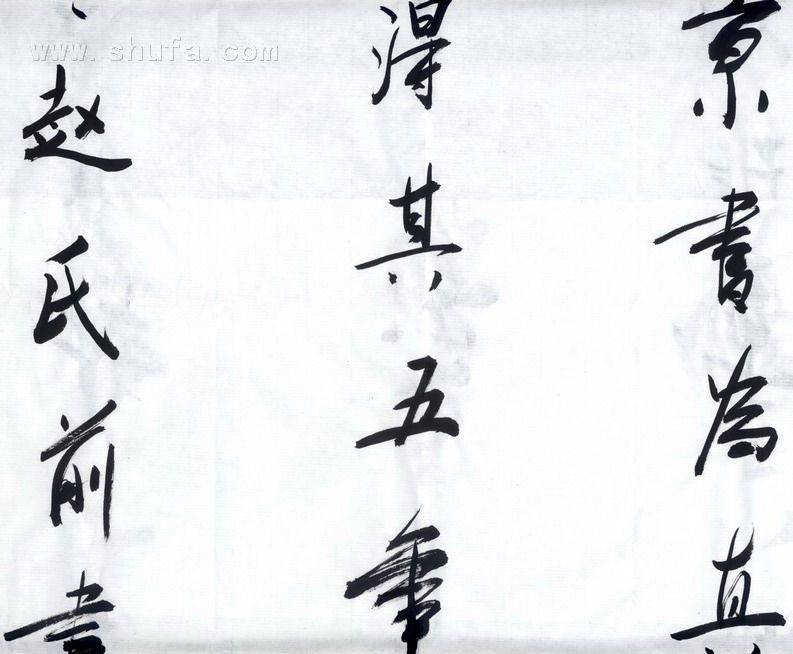 京書為直
得其五年
赵氏前書
www.shufa.com